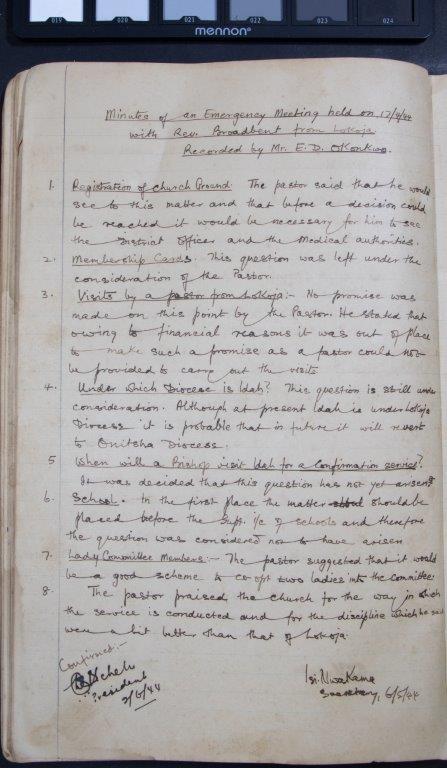 019 020 021 022 023 024
mennon®
Minutes of an Emergency Meeting held on 17/4/44
with Rev. Broadbent from Lokoja
Recorded by Mr. E. D. Okonkwo.
1. Registration of Church Ground. The pastor said that he would
see to this matter and that before a decision could
be reached it would be necessary for him to see
the District Officer and the Medical authorities.
2. Membership Cards. This question was left under the
consideration of the Pastor.
3. Visits by a pastor from Lokoja:- No promise was
made on this point by the Pastor. He stated that
owing to financial reasons it was out of place
to make such a promise as a pastor could not
be provided to carry out the visits
4. Under which Diocese is Idah? This question is still under
consideration. Although at present Idah is under Lokoja
Diocess it is probable that in future it will revert
to Onitsha Diocess.
5 When will a Bishop visit Idah for a Confirmation service?
It was decided that this question has not yet arisen?
6. School. In the first place the matter should be
placed before the Sup. i/c of schools and therefore
the question was considered not to have arisen
7. Lady Committee Members:- The pastor suggested that it would
be a good scheme to co-opt two ladies into the Committee
8. The pastor praised the Church for the way in which
the service is conducted and for the discipline which he said
were a bit better than that of Lokoja.
Confirmed:-
President
2/6/44
Nwakama
Secretary, 6/5/44